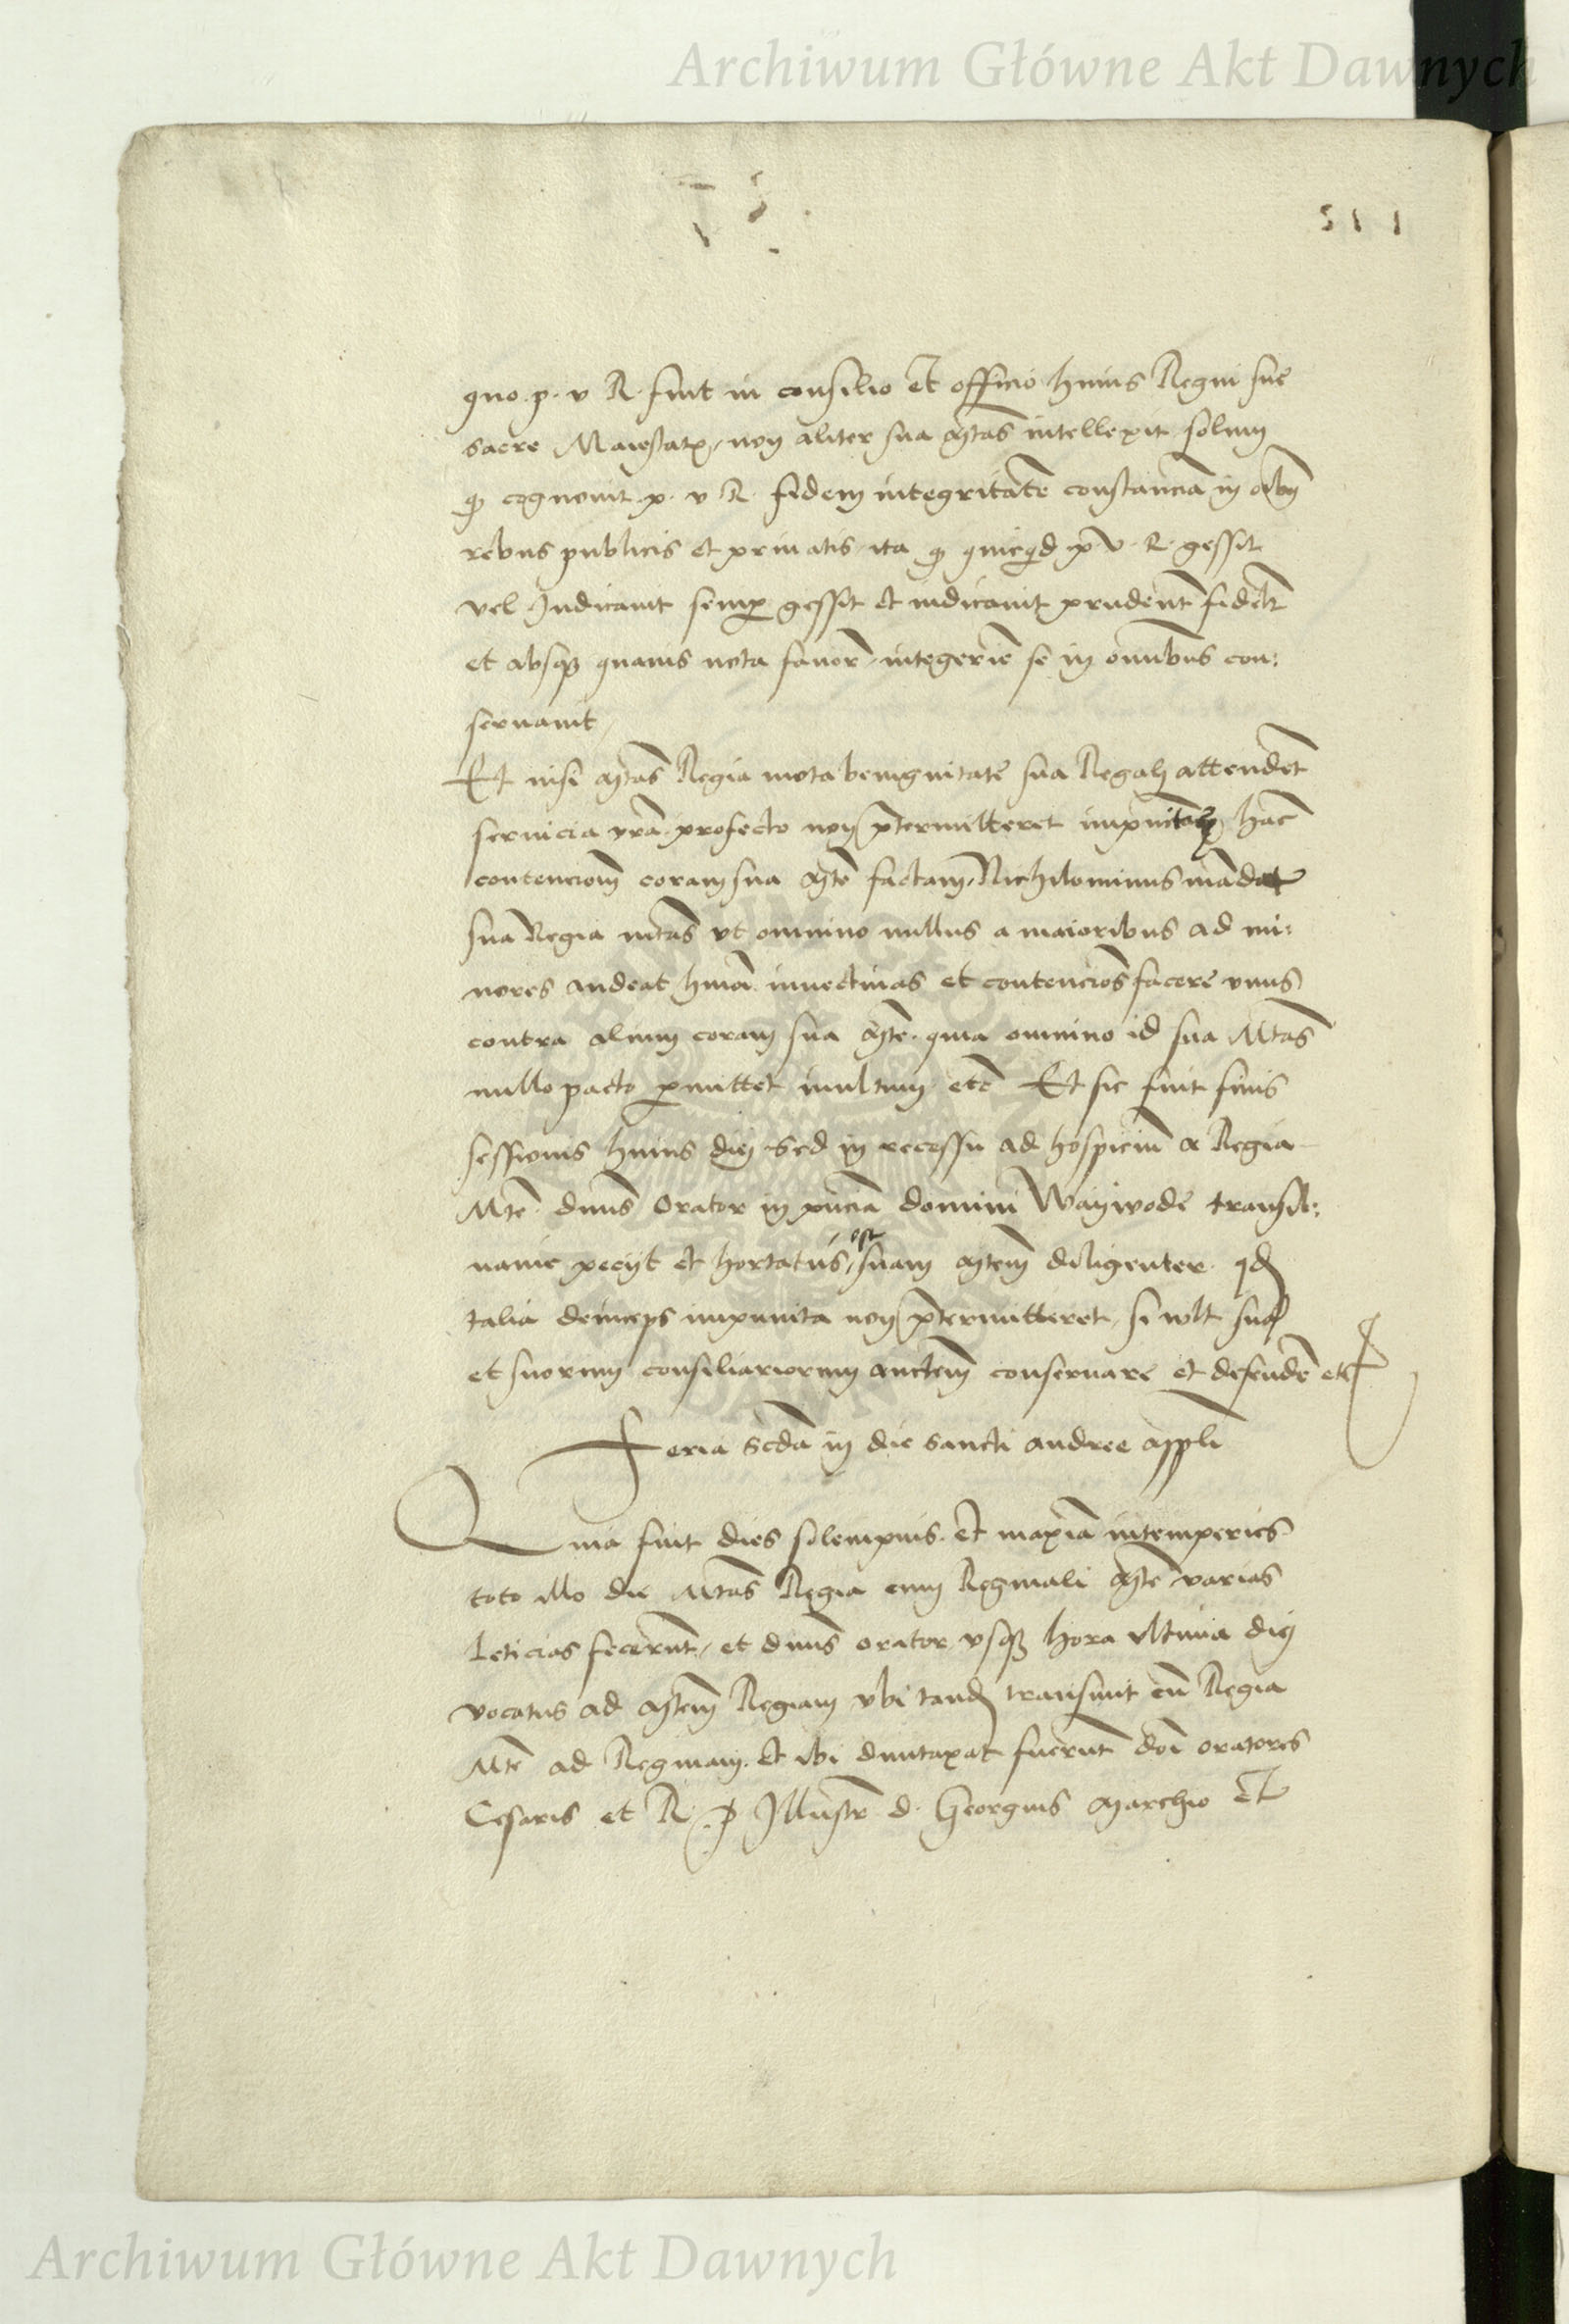 Archiwum Główne Akt Dawnych
quo p. v R. fuit in consilio et officio huius Regni sue
sacre Maiestatis, non aliter sua Mtas intellexit solum
cognouit p. v R. fidem integritatē constanciā in oībus
rebus publicis et priuatis, ita quicqd p v. R. gessit
vel Iudicauit semp gessit et iudicauit prudentr fidelr
et absqz quauis nota fauor, integerīe se in omnibus con:
seruauit,
Et nisi Mtas Regia mota benignitate sua Regali attenderet
seruicia vra profecto non ptermitteret hāc
contencionē coram sua Mte factam, Nichilominus mandat
sua Regia mtas vt omnino nullus a maioribus ad mi:
nores audeat hmōi inuectiuas et contenciōes facere vnus
contra alium coram sua Mte. quia omnino id sua Mtas
nullo pacto pmittet inultum etc Et sic fuit finis
sessionis huius diei Sed in recessu ad hospiciū a Regia
Mte. dnus Orator in pñcia domini Waywode transil:
uanie peciit et hortatus, est suam Mtem diligenter. qd
talia deinceps impunita non ptermitteret, si vult suā
et suorum consiliariorum auctem conseruare et defendē etc
Feria Scda in die sancti andree appli
Quia fuit dies solempnis. et maxīa intemperies
toto illo die Mtas Regia cum Reginali Mte varias
leticias fecerūt, et dnus orator vsqz hora vltima diei
vocatus ad Mtem Regiam vbi tand transiuit cū Regia
Mte ad Reginam. Et ibi duntaxat fuerūt doī oratores
Cesaris et R. p Illustr d. Georgius Marchio et
Archiwum Główne Akt Dawnych